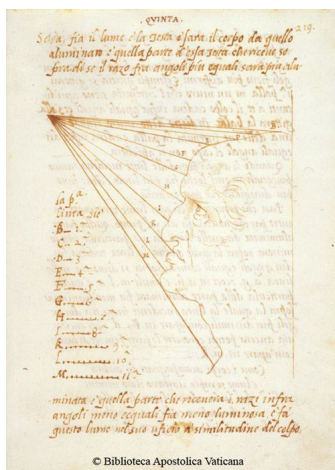 QVINTA.
219.
Sopa, fia il lume, e la Testa e fara il corpo da quello
aluminato e quella parte d'essa Testa che riceve so
pra di se il razo fra angoli piu equali sara piu alu
la p.ª
tinta sie
B 1ª
C 2ª
D 3ª
E 4ª
F 5ª
G 6ª
H 7ª
I 8ª
K 9ª
L 10ª
M 11ª
S
F
H
I
G
L
M
minata e quella parte che ricevera i razi infra
angoli meno eequali fia meno luminosa, e fa
questo lume nel suo ufitio a similitudine del colpo.
© Biblioteca Apostolica Vaticana